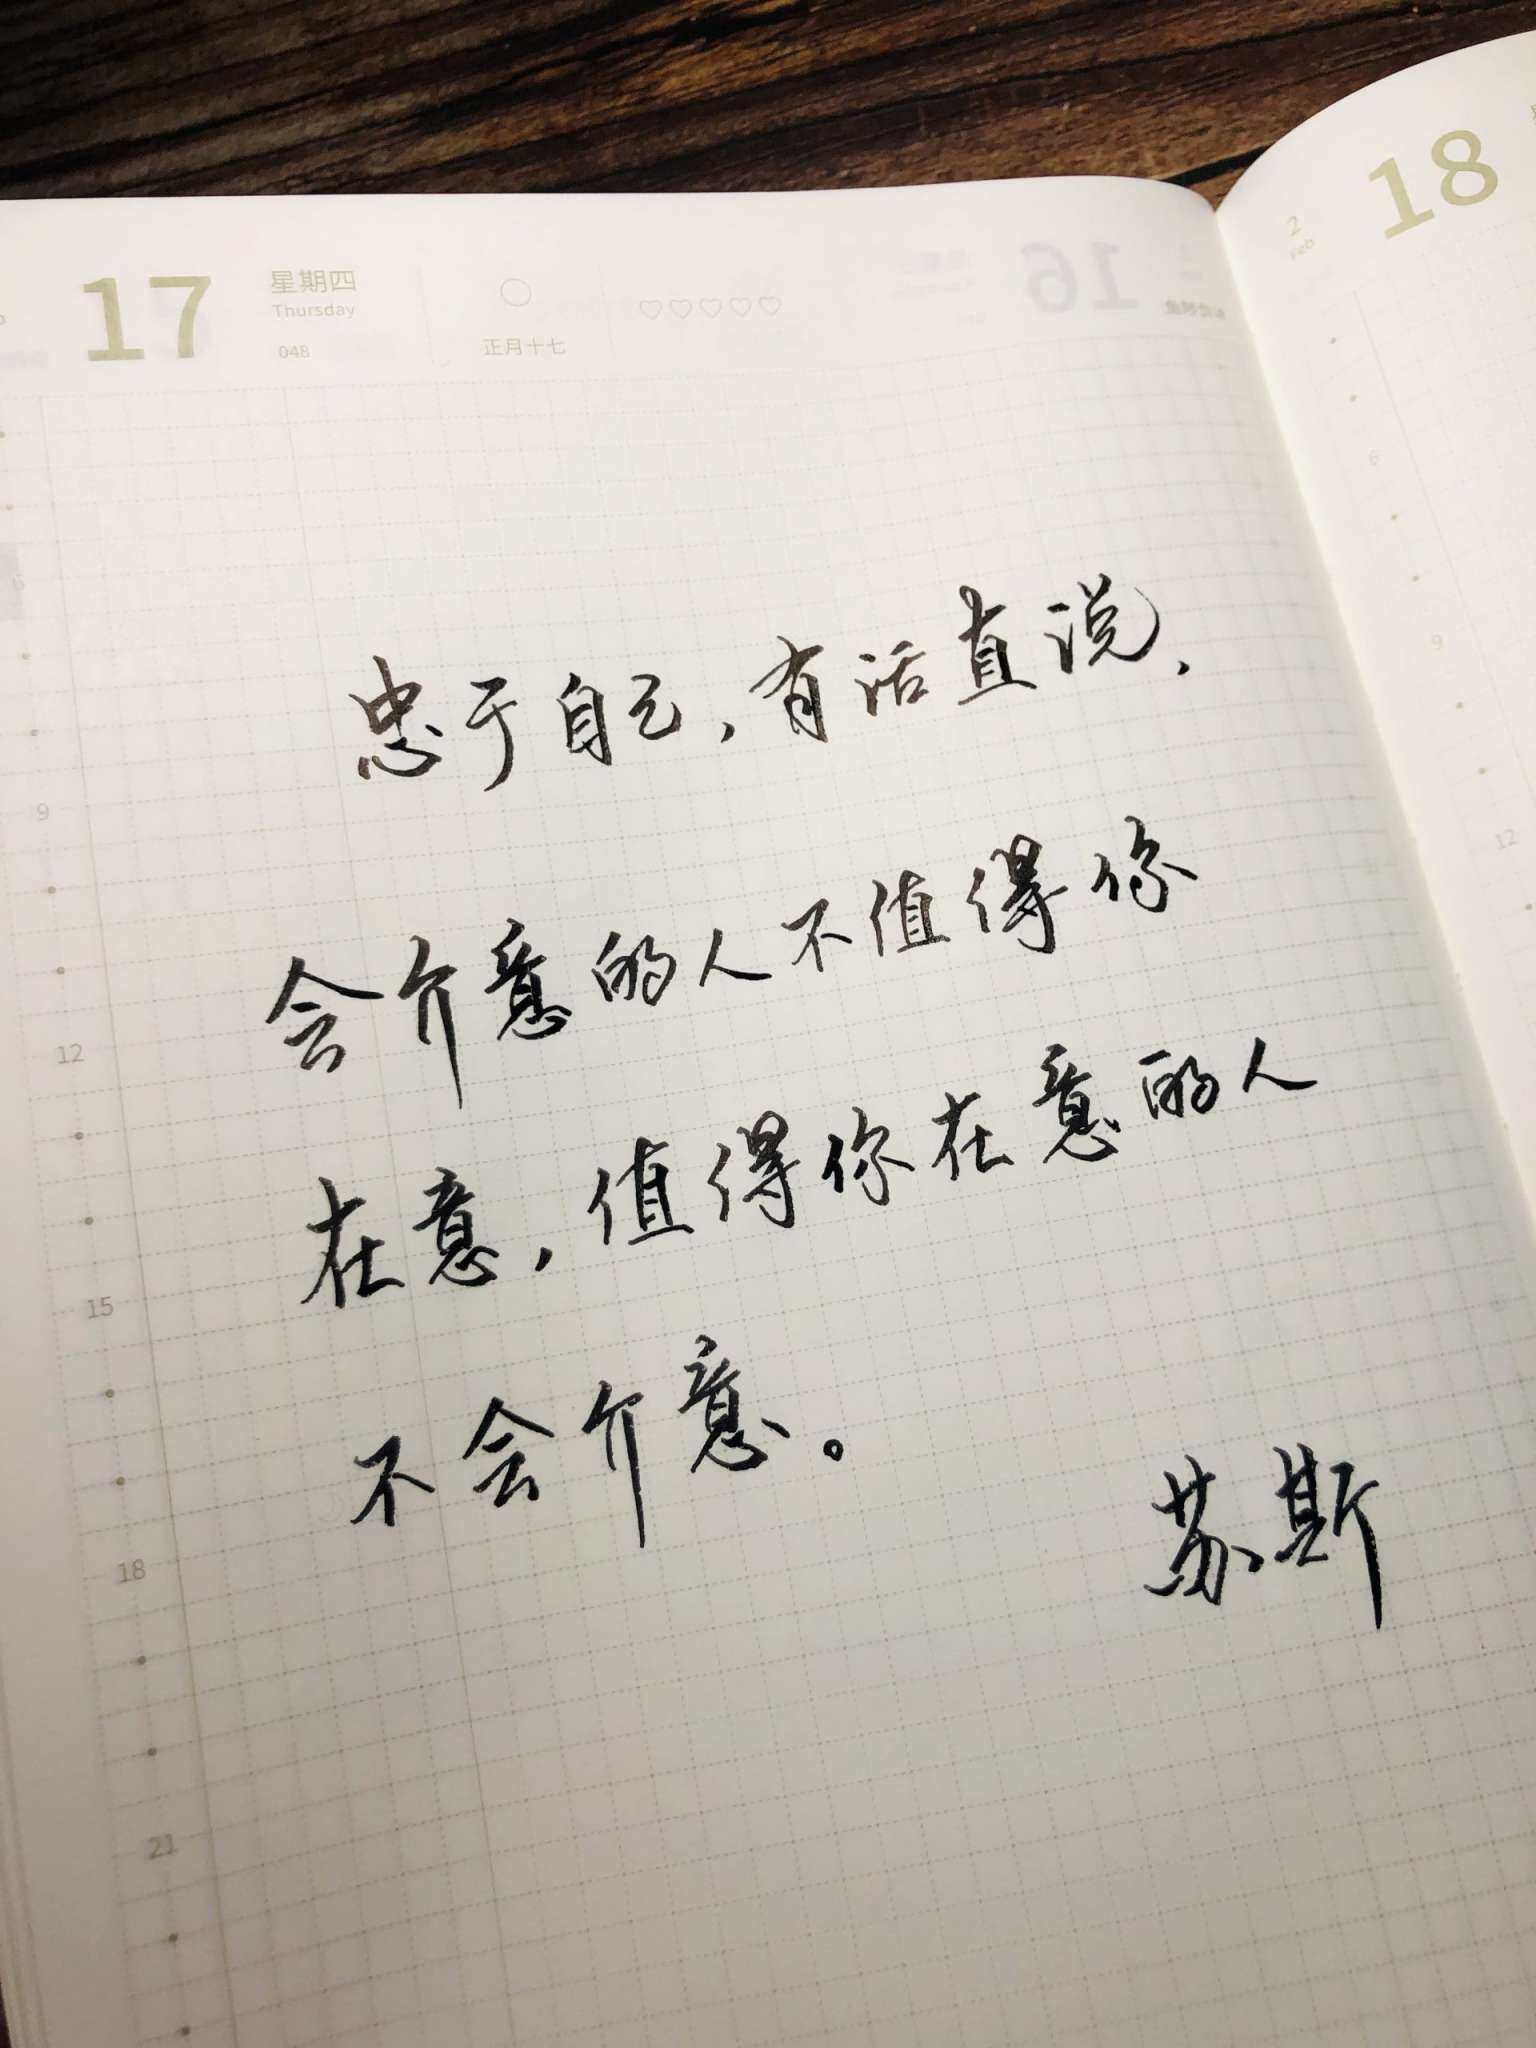 17
星期四
Thursday
048
正月十七
18
2
Feb
忠于自己，有话直说，
会介意的人不值得你
在意，值得你在意的人
不会介意。
苏斯
9
12
15
18
21
6
9
12
16